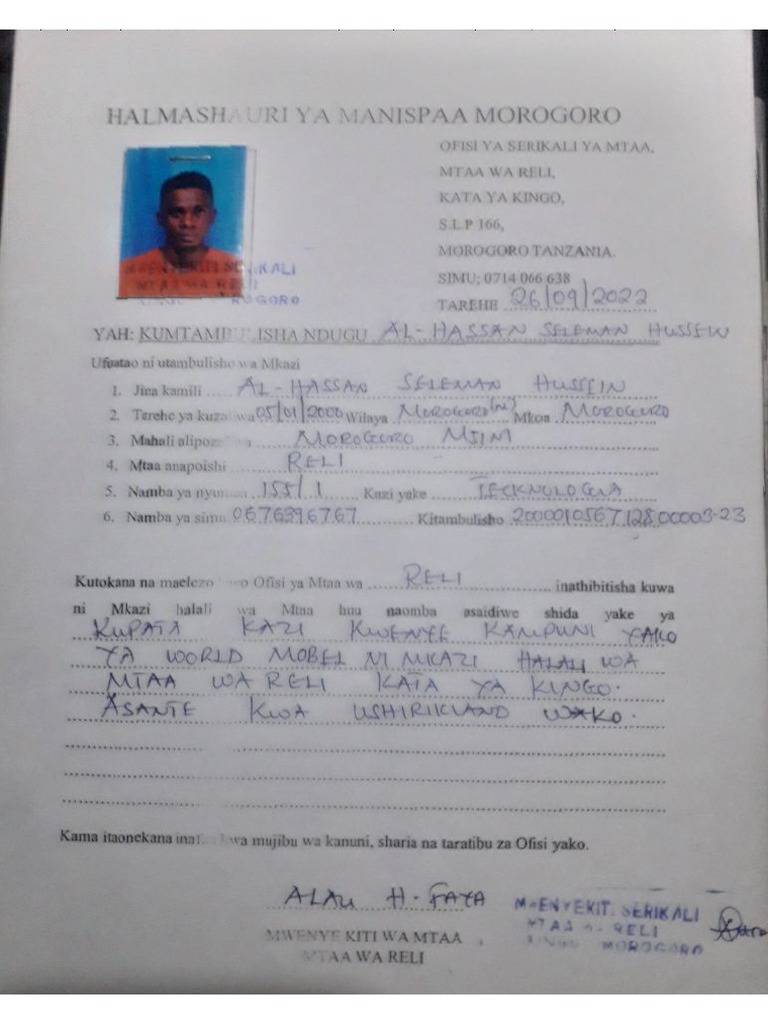 HALMASHAURI YA MANISPAA MOROGORO
OFISI YA SERIKALI YA MTAA,
MTAA WA RELI,
KATA YA KINGO,
S.L.P 166,
MOROGORO TANZANIA.
SIMU; 0714 066 638
TAREHE 26/09/2022
MWENYEKITI SERIKALI
MTAA WA RELI
MOROGORO
YAH: KUMTAMBULISHA NDUGU AL-HASSAN SELEMAN HUSSEIN
Ufuatao ni utambulisho wa Mkazi
1. Jina kamili AL-HASSAN SELEMAN HUSSEIN
2. Terehe ya kuzaliwa 05/01/2000 Wilaya MOROGORO (M) Mkoa MOROGORO
3. Mahali alipoza MOROGORO MJINI
4. Mtaa anapoishi RELI
5. Namba ya nyumba 155/1 Kazi yake TECKNOLOGIA
6. Namba ya simu 0676396767 Kitambulisho 200001056712800003-23
Kutokana na maelezo Ofisi ya Mtaa wa RELI inathibitisha kuwa
ni Mkazi halali wa Mtaa huu naomba asaidiwe shida yake ya
KUPATA KAZI KWENYE KAMPUNI YAKO
YA WORLD MOBEL NI MKAZI HALALI WA
MTAA WA RELI KATA YA KINGO.
ASANTE KWA USHIRIKIANO WAKO.
Kama itaonekana kwa mujibu wa kanuni, sharia na taratibu za Ofisi yako.
H. FAYA
MWENYE KITI WA MTAA
MTAA WA RELI
MWENYEKITI SERIKALI
MTAA RELI
MOROGORO